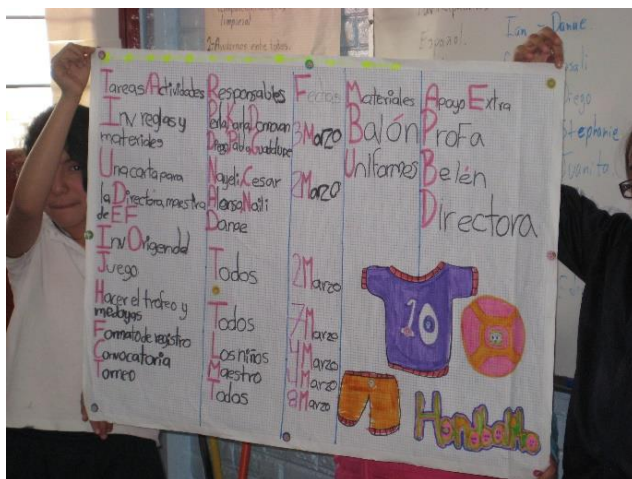 limpieza
2-Avisarnos entre todos.
Español.
Ian - Danae
Diego
Stephanie
Juanita
Tareas/Actividades Responsables Fechas Materiales Apoyo Extra
Inv reglas y materiales Perla, Karla, Donovan Diego, Pablo, Guadalupe 3 Marzo Balón Profa
Una carta para la Directora, maestra de EF Nayeli, Cesar Alonso, Naili Danae 2 Marzo Uniformes Belén
Directora
Inv Origen del Juego Todos 2 Marzo
Hacer el trofeo y medayas Todos 7 Marzo
Formato de registro Los niños 4 Marzo
Convocatoria Maestro 4 Marzo
Torneo Todos 8 Marzo
10